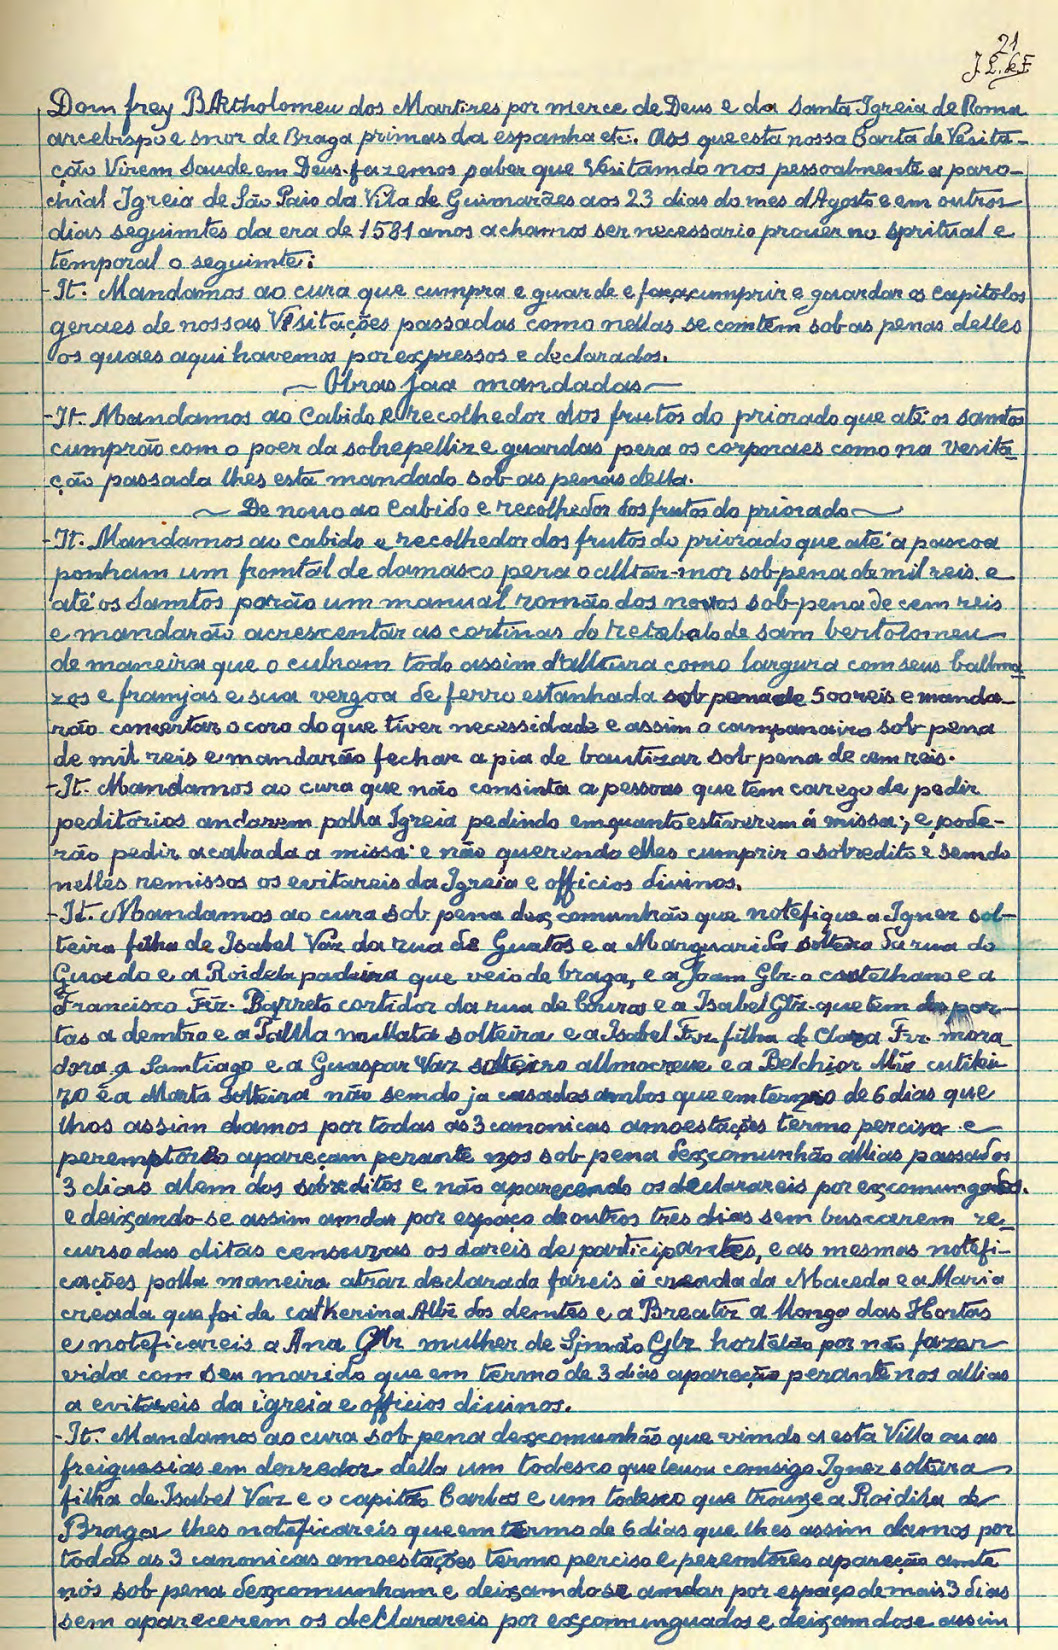 21
Dom frey BArtholomeu dos Martires por merce de Deus e da Santa Igreia de Roma
arcebispo e snor de Braga primas da espanha etc. Aos que esta nossa Carta de Vesita-
ção Virem Saude em Deus. fazemos saber que Vesitamdo nos pessoalmente a paro-
chial Igreia de São Paio da Vila de Guimarães aos 23 dias do mes dAgosto e em outros
dias seguimtes da era de 1581 anos achamos ser necessario prouer no spritual e
temporal o seguimte:
-It. Mandamos ao cura que cumpra e guarde e faça cumprir e guardar os capitolos
geraes de nossas Visitações passadas como nellas se comtem sob as penas delles
os quaes aqui havemos por expressos e declarados.
~ Obras jaa mandadas ~
-It. Mandamos ao Cabido e recolhedor dos frutos do priorado que até os samtos
cumprão com o poer da sobrepelliz e guardas pera os corporaes como na vesita
ção passada lhes está mandado sob as penas della.
~ De nouo ao Cabido e recolhedor dos frutos do priorado ~
-It. Mandamos ao Cabido e recolhedor dos frutos do priorado que até a pascoa
ponham um fromtal de damasco pera o alltar-mor sob pena de mil reis e
até os Samtos porão um manual romão dos novos sob-pena de cem reis
e mandarão acrescentar as cortinas do retabalo de sam bertolomeu
de maneira que o cubram todo assim d'alltura como largura com seus
zos e framjas e sua vergoa de ferro estanhada sob pena de 500 reis e manda-
rão comsertar o coro do que tiver necessidade e assim o campanairo sob pena
de mil reis e mandarão fechar a pia de bautizar sob pena de cem reis.
-It. Mandamos ao cura que não consinta a pessoas que tem carego de pedir
peditorios andarem polla Igreia pedindo emquanto estiverem á missa; e pode-
rão pedir acabada a missa: e não querendo elles cumprir o sobredito e semdo
nelles remissos os evitareis da Igreia e officios diuinos.
-It. Mandamos ao cura sob pena dexcomunhão que notefique a Ignez sol-
teira filha de Isabel Vaz da rua de Guatos e a Marguarida solteira da rua do
Guado e a Roidela padeira que veio de braga, e a Joam Glz. o castelhano e a
Francisco Frz. Barreto cortidor da rua de Couros e a Isabel Glz. que tem das por-
tas a demtro e a Talha mullata solteira e a Isabel Frz. filha de Clara Frz. mora
dora a Samtiago e a Guaspar Vaz solteiro allmocreue e a Belchior Miz cutilei
ro e a Marta solteira não semdo ja casados ambos que em termo de 6 dias que
lhos assim damos por todas as 3 canonicas amoestações termo perciso e
peremptorio apareçam perante nos sob pena dexcomunhão allias passados
3 dias alem dos sobreditos e não aparecendo os declarareis por excomungados.
e deixando-se assim amdar por espaço de outros tres dias sem buscarem re-
curso das ditas censuras os dareis de participantes, e as mesmas notefi-
cações polla maneira atraz declarada fareis á creada da Maceda e a Maria
creada que foi de catherina Alvz dos demtes e a Breatiz a Monga das Hortas
e noteficareis a Ana Glz mulher de Simão Glz hortelão por não fazer
vida com seu marido que em termo de 3 dias apareção perante nos allias
a evitareis da igreia e officios diuinos.
-It. Mandamos ao cura sob pena dexcomunhão que vimdo a esta Villa ou as
freiguesias em derredor della um todesco que leuou comsigo Ignez solteira
filha de Isabel Vaz e o capitão Carlos e um todesco que trouxe a Roidila de
Braga lhes noteficareis que em termo de 6 dias que lhes assim damos por
todas as 3 canonicas amoestações termo perciso e peremtores apareção amte
nós sob pena dexcomunham e deixamdo-se amdar por espaço de mais 3 dias
sem aparecerem os declarareis por excomunguados e deixamdose assim